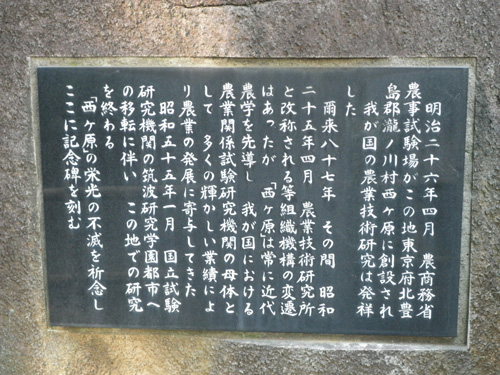 明治二十六年四月　農商務省
農事試験場がこの地東京府北豊
島郡瀧ノ川村西ヶ原に創設され
我が国の農業技術研究は発祥
した
爾来八十七年　その間　昭和
二十五年四月　農業技術研究所
と改称される等組織機構の変遷
はあったが　「西ヶ原」は常に近代
農学を先導し　我が国における
農業関係試験研究機関の母体と
して　多くの輝かしい業績によ
り農業の発展に寄与してきた
昭和五十五年一月　国立試験
研究機関の筑波研究学園都市へ
の移転に伴い　この地での研究
を終わる
「西ヶ原」の栄光の不滅を祈念し
ここに記念碑を刻む